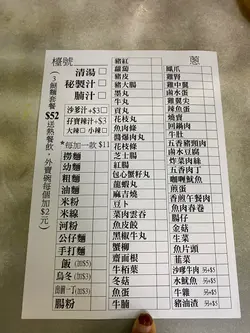 檯號
(3餸麵套餐$52送熱餐飲,外賣碗每個加$2元)
清湯
秘製汁
腩汁
沙爹汁+$3
孖寶辣汁+$3
大辣 小辣
*每加一餸$11
撈麵
幼麵
粗麵
油麵
米粉
米線
河粉
公仔麵
手打麵
飯(加$5)
烏冬(加$3)
出前一丁(加$3)
腸粉
豬紅
蘿蔔
豬皮
豬大腸
貢丸
牛丸
花枝丸
魚肉條
墨魚丸
芝士腸
紅腸
包心蟹籽丸
龍蝦丸
麻吉燒
豆卜
菜肉雲吞
魚皮餃
黑椒牛丸
蟹柳
齋面根
牛栢葉
冬菇
牛腩
鳳爪
雞腎
雞中翼
雞翼尖
辣魚蛋
燒賣
回鍋肉
牛肚
五香豬頸肉
鹵水蛋
炸菜肉絲
五香肉丁
咖喱魷魚
煎蛋
煎蛋
香煎魚餅
魚肉春卷
腸仔
金菇
生菜
魚片頭
韮菜
沙嗲牛肉 另+$5
水魷魚 另+$5
牛雜 另+$5
豬油渣 另+$5